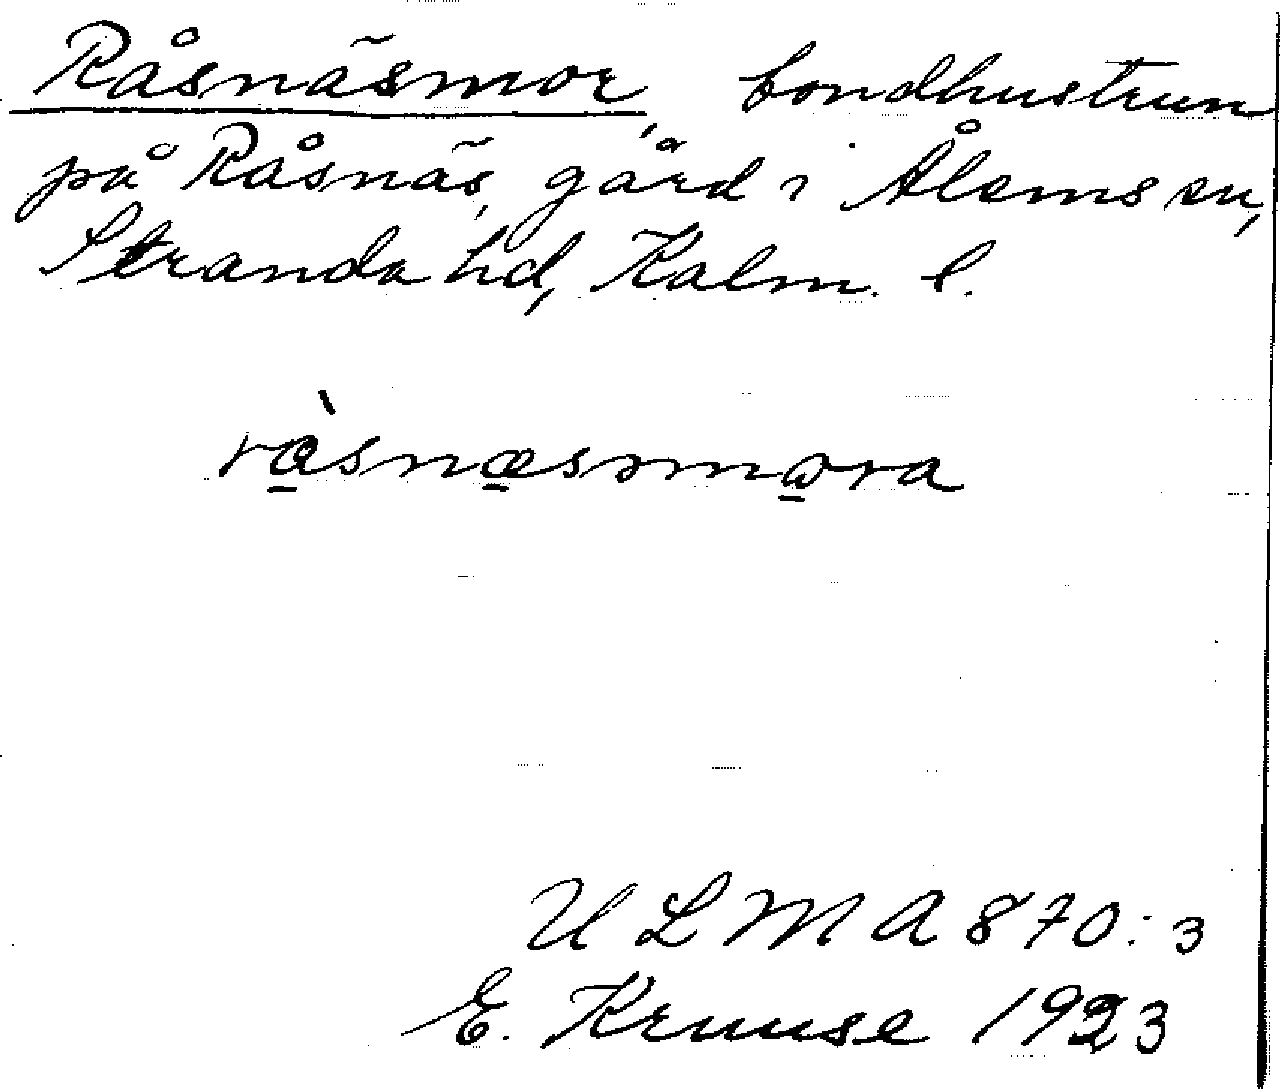 Råsnäsmor, bondhustrun
på Råsnäs, gård i Ålems sn,
Stranda hd, Kalm. l.
ULMA 870:3
E. Kruuse 1923